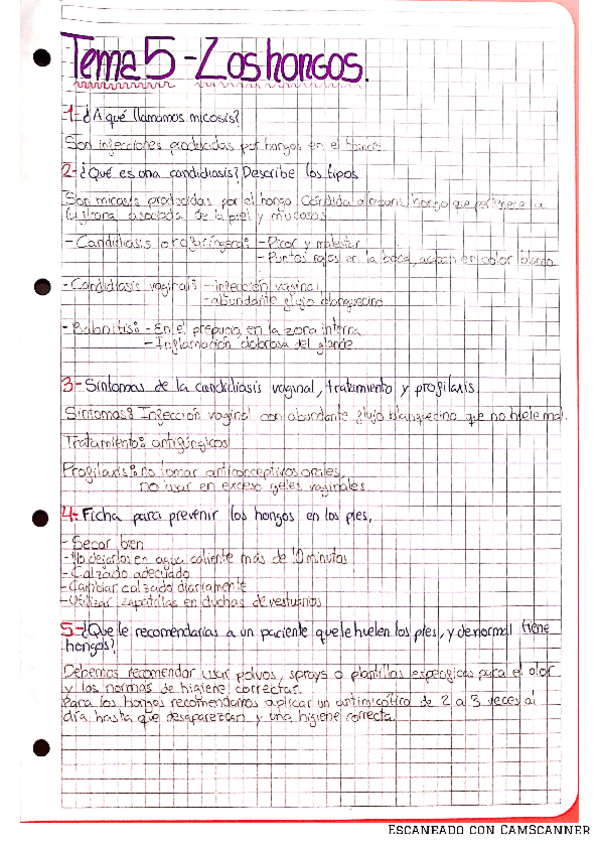 Tema 5 - Los hongos.
1- ¿A qué llamamos micosis?
Son infecciones producidas por hongos en el
2- ¿Qué es una candidiasis? Describe los tipos
Son micosis producidas por el hongo Cándida albicans, hongo que pertenece a
la asociada de la piel y mucosas
- Candidiasis orofaríngea: - Picor y malestar
- Puntos rojos en la boca, acaban en color blanco
- Candidiasis vaginal: - infección vaginal
- abundante flujo blanquecino
- Balanitis: - En el prepucio, en la zona interna
- Inflamación dolorosa del glande.
3- Síntomas de la candidiasis vaginal, tratamiento y profilaxis
Síntomas: Infección vaginal con abundante flujo blanquecino que no huele mal.
Tratamiento: antifúngicos
Profilaxis: no tomar anticonceptivos orales,
no usar en exceso geles vaginales.
4- Ficha para prevenir los hongos en los pies.
- Secar bien
- No dejarlos en agua caliente más de 10 minutos
- Calzado adecuado
- Cambiar calzado diariamente
- Utilizar zapatillas en duchas de vestuarios
5- ¿Que le recomendarias a un paciente que le huelen los pies, y de normal tiene
hongos?
Debemos recomendar usar polvos, sprays o plantillas específicas para el olor
y las normas de higiene correctar.
Para los hongos recomendamos aplicar un antimicótico de 2 a 3 veces al
día hasta que desaparezcan y una higiene correcta.
Escaneado con CamScanner